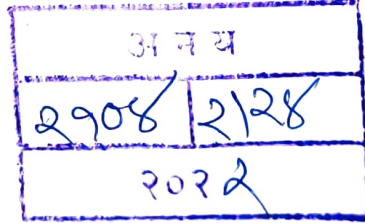 अ न य
२१०४ २/२४
२०२२